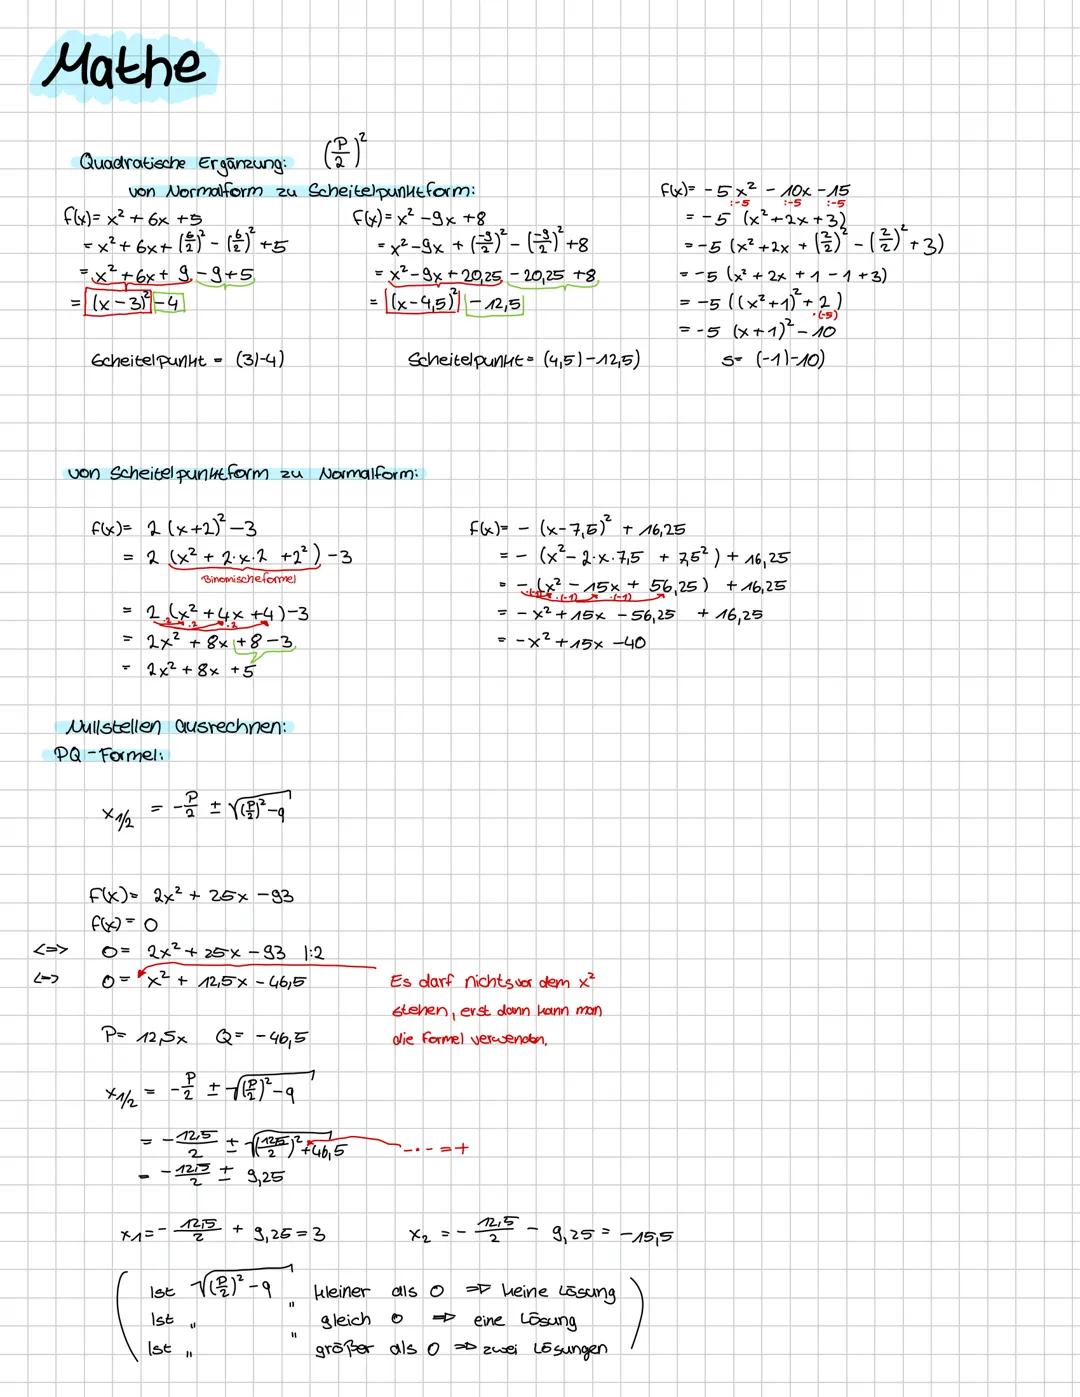 Mathe
Quadratische Ergänzung: (P/2)²
von Normalform zu Scheitelpunktform:
f(x)= x² + 6x +5
= x² + 6x + (6/2)² - (6/2)² +5
= x² + 6x + 9 - 9 + 5
= (x-3)² -4
Scheitelpunkt = (3|-4)
f(x)= x² -9x +8
= x² -9x + (-9/2)² - (-9/2)² +8
= x² -9x + 20,25 - 20,25 +8
= (x-4,5)² - 12,5
Scheitelpunkt = (4,5|-12,5)
f(x)= -5x² - 10x -15
:-5 :-5 :-5
= -5 (x² +2x +3)
= -5 (x² +2x + (2/2)² - (2/2)² +3)
= -5 (x² + 2x + 1 - 1 +3)
= -5 ((x²+1)² + 2)
·(-5)
= -5 (x+1)² - 10
S= (-1|-10)
von Scheitelpunktform zu Normalform:
f(x)= 2 (x+2)² -3
= 2 (x² + 2·x·2 +2²) -3
Binomische formel
= 2 (x² +4x +4) -3
·2 ·2 ·2
= 2x² + 8x +8 -3
= 2x² + 8x +5
f(x)= - (x-7,5)² + 16,25
= - (x² - 2·x·7,5 + 7,5²) + 16,25
= - (x² - 15x + 56,25) + 16,25
·(-1) ·(-1) ·(-1)
= -x² + 15x - 56,25 + 16,25
= -x² + 15x -40
Nullstellen ausrechnen:
PQ-Formel:
x1/2 = -P/2 ± √((P/2)² -q)
f(x)= 2x² + 25x -93
f(x) = 0
<=> 0= 2x² + 25x -93 |:2
<=> 0= x² + 12,5x - 46,5
Es darf nichts vor dem x²
stehen, erst dann kann man
die Formel verwenden.
P= 12,5x Q= -46,5
x1/2 = -P/2 ± √((P/2)² -q)
= -12,5/2 ± √((12,5/2)² +46,5)
-·- = +
= -12,5/2 ± 9,25
x1= -12,5/2 + 9,25 = 3
x2 = -12,5/2 - 9,25 = -15,5
Ist √((P/2)² -q) kleiner als 0 => keine Lösung
Ist " " gleich 0 => eine Lösung
Ist " " größer als 0 => zwei Lösungen